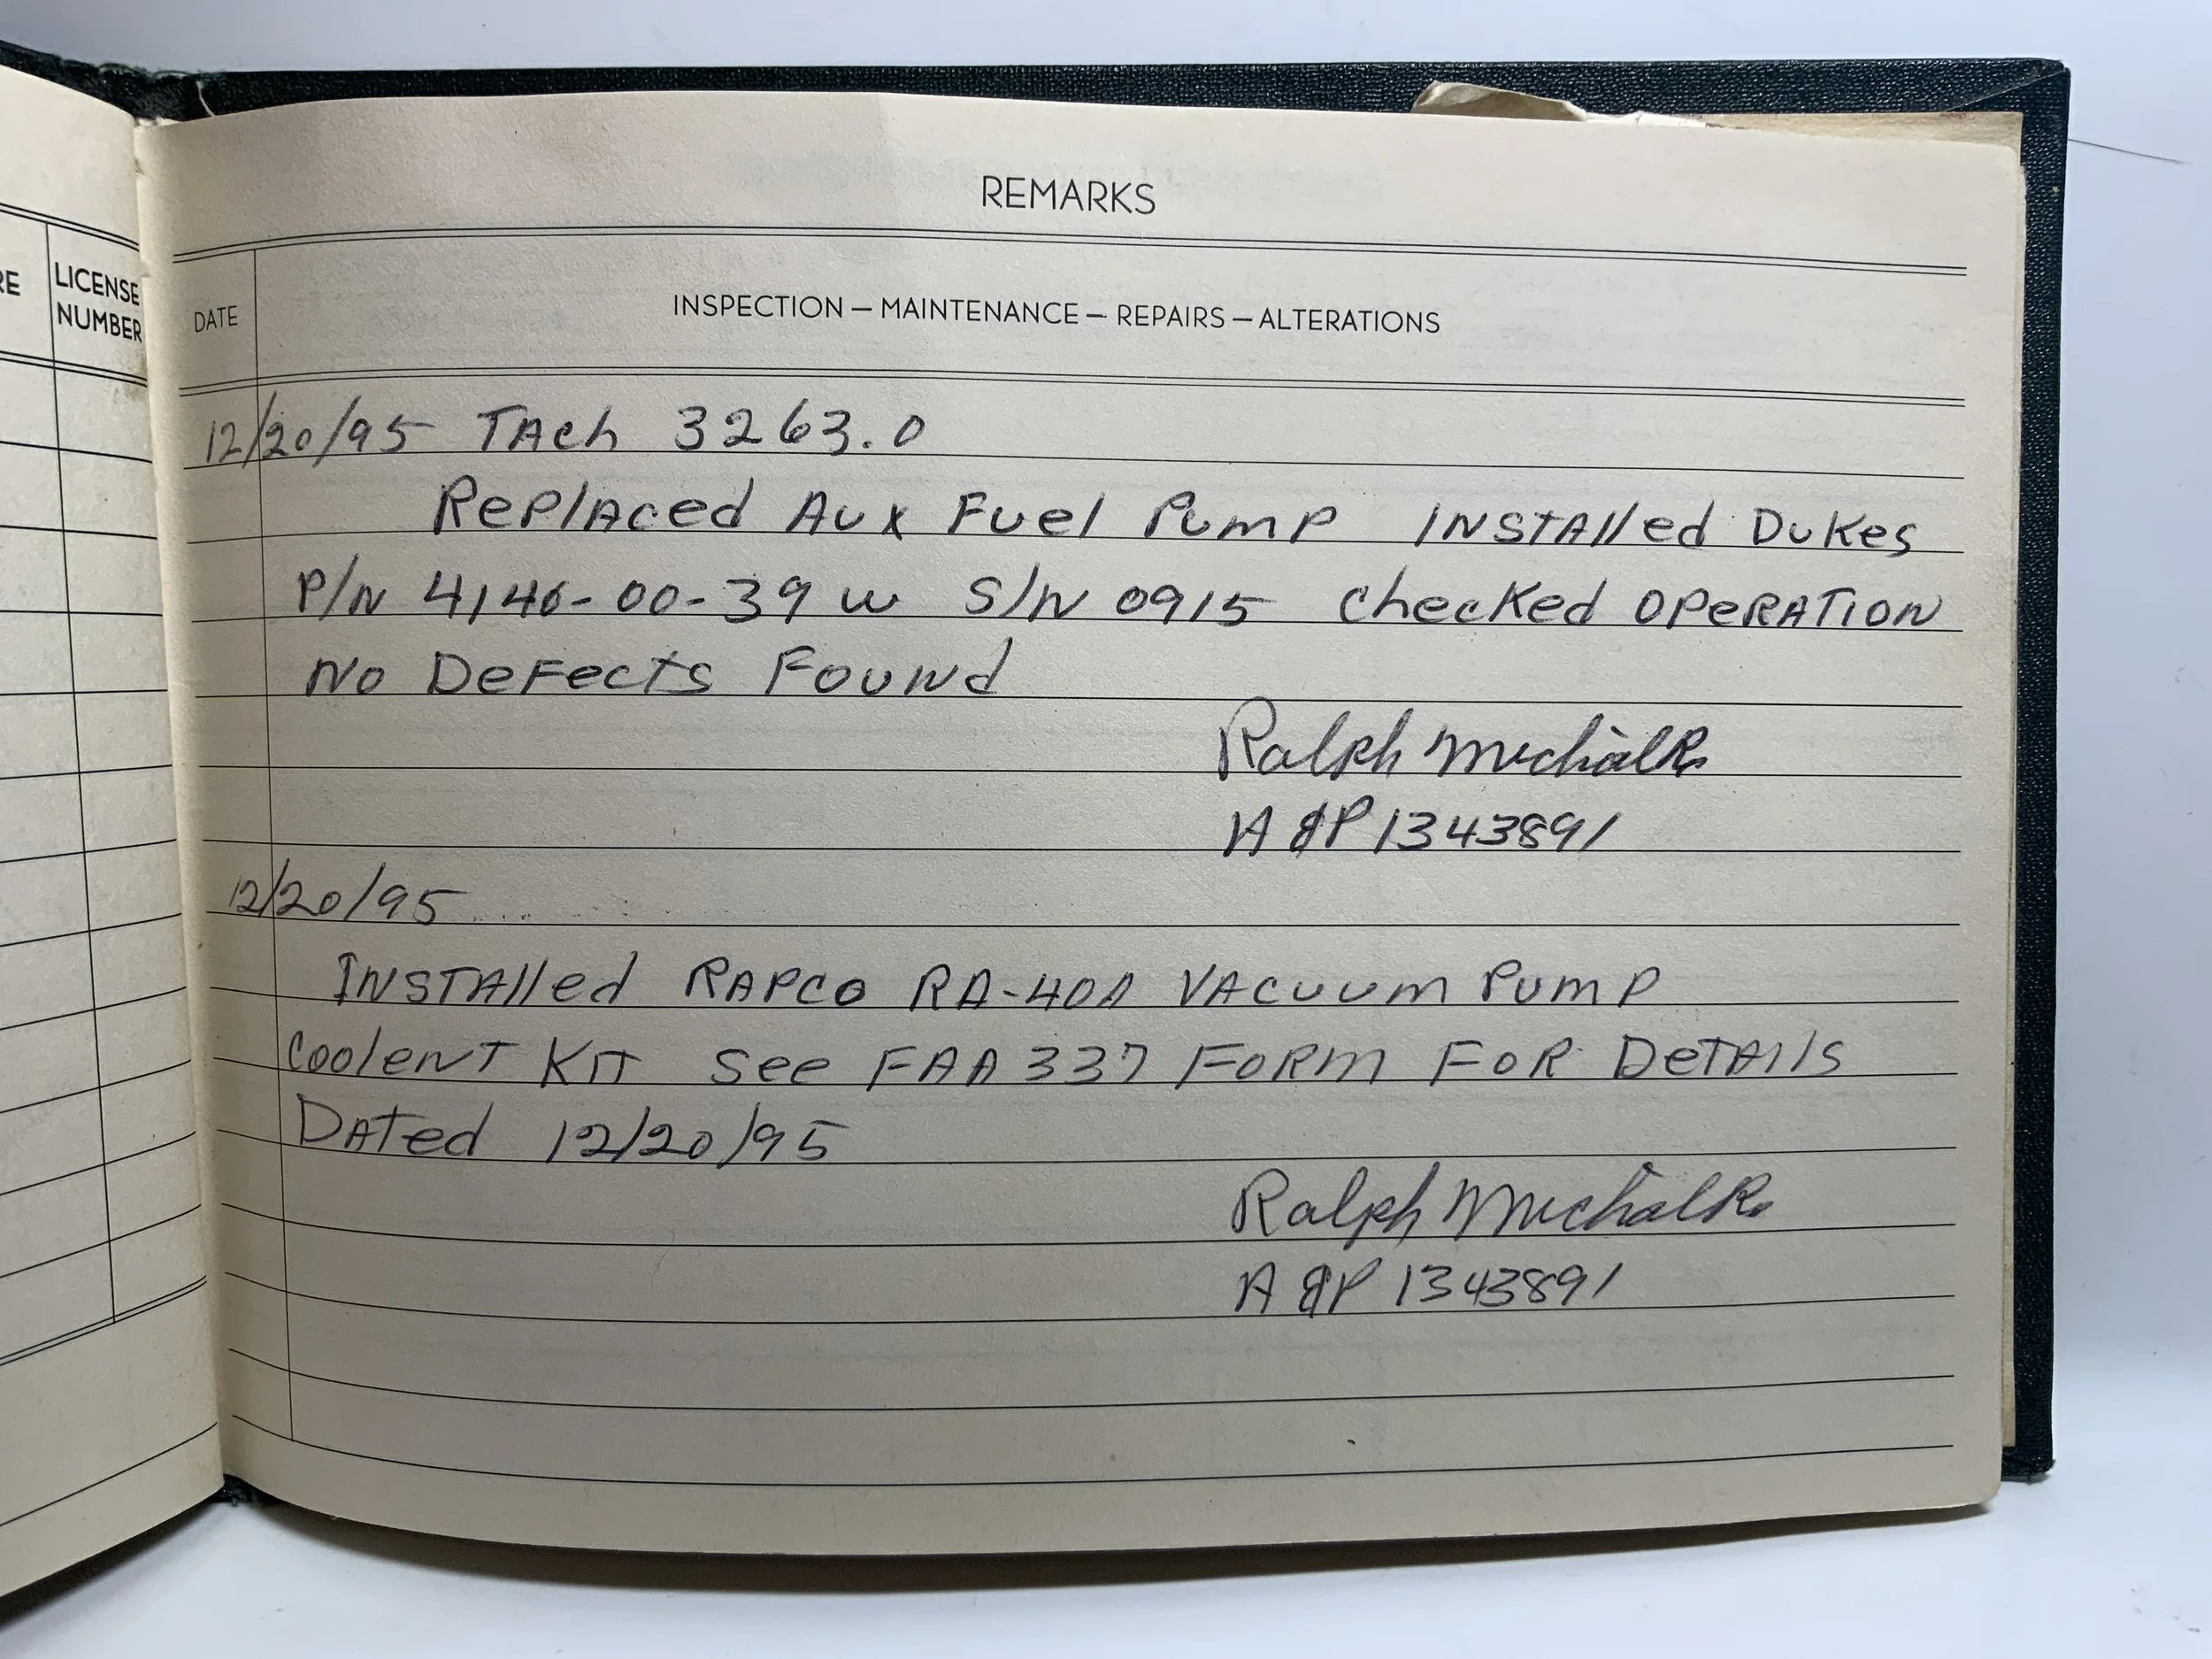 RE
LICENSE
NUMBER
REMARKS
DATE
INSPECTION — MAINTENANCE — REPAIRS — ALTERATIONS
12/20/95 TAch 3263.0
Replaced Aux Fuel Pump INSTAlled Dukes
P/N 4140-00-39 w S/N 0915 checked OPeRATION
No Defects Found
Ralph Michalk
A&P 1343891
12/20/95
INSTAlled RAPCO RA-40A VAcuum Pump
CoolenT KIT See FAA 337 FORM FOR DeTAIls
DATed 12/20/95
Ralph Michalk
A&P 1343891